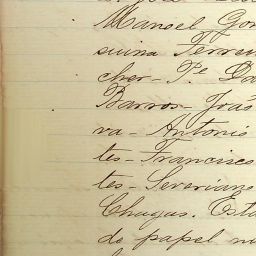 Manoel Gon
suina Ferrei
cher - P.e Da
Barros - João
va - Antonio
tes - Francisco
tes - Severiano
Chagas. Esta
de papel no